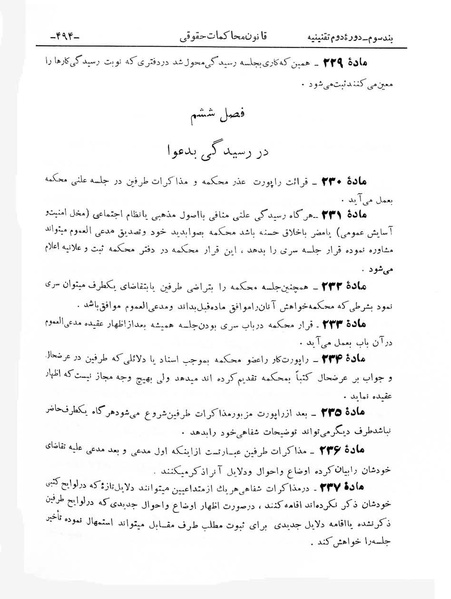 بند سوم - دورهٔ دوم تقنینیه
قانون محاکمات حقوقی
-۴۹۴-
مادهٔ ۲۲۹ - همین که کاری بجلسه رسیدگی محول شد در دفتری که نوبت رسیدگی کارها را
معین می کنند ثبت می شود .
فصل ششم
در رسیدگی بدعوا
مادهٔ ۲۳۰ - قرائت راپورت عذر محکمه و مذاکرات طرفین در جلسه علنی محکمه
بعمل می آید .
مادهٔ ۲۳۱ - هر گاه رسیدگی علنی منافی با اصول مذهبی یا نظام اجتماعی (مخل امنیت و
آسایش عمومی) یا مضر باخلاق حسنه باشد محکمه بصوابدید خود و تصدیق مدعی العموم میتواند
مشاوره نموده قرار جلسه سری را بدهد ، این قرار محکمه در دفتر محکمه ثبت و علانیه اعلام
می شود .
مادهٔ ۲۳۲ - همچنین جلسه محکمه را بتراضی طرفین یا بتقاضای یکطرف میتوان سری
نمود بشرطی که محکمه خواهش آنان را موافق ماده قبل بداند و مدعی العموم موافق باشد .
مادهٔ ۲۳۳ . قرار محکمه در باب سری بودن جلسه همیشه بعد از اظهار عقیده مدعی العموم
در آن باب بعمل می آید .
مادهٔ ۲۳۴ - راپورت کار را عضو محکمه بموجب اسناد یا دلائلی که طرفین در عرضحال
و جواب بر عرضحال کتباً بمحکمه تقدیم کرده اند میدهد ولی بهیچ وجه مجاز نیست که اظهار
عقیده نماید .
مادهٔ ۲۳۵ - بعد از راپورت مزبور مذاکرات طرفین شروع می شود هر گاه یکطرف حاضر
نباشد طرف دیگر می تواند توضیحات شفاهی خود را بدهد .
مادهٔ ۲۳۶ - مذاکرات طرفین عبارتست از اینکه اول مدعی و بعد مدعی علیه تقاضای
خودشان را بیان کرده اوضاع و احوال و دلایل آنرا ذکر میکنند .
مادهٔ ۲۳۷ - در مذاکرات شفاهی هر یك از متداعیین میتوانند دلایل تازۀ که در لوایح کتبی
خودشان ذکر نکرده اند اقامه کنند ، در صورت اظهار اوضاع و احوال جدیدی که در لوایح طرفین
ذکر نشده یا اقامه دلایل جدیدی برای ثبوت مطلب طرف مقابل میتواند استمهال نموده تأخیر
جلسه را خواهش کند .